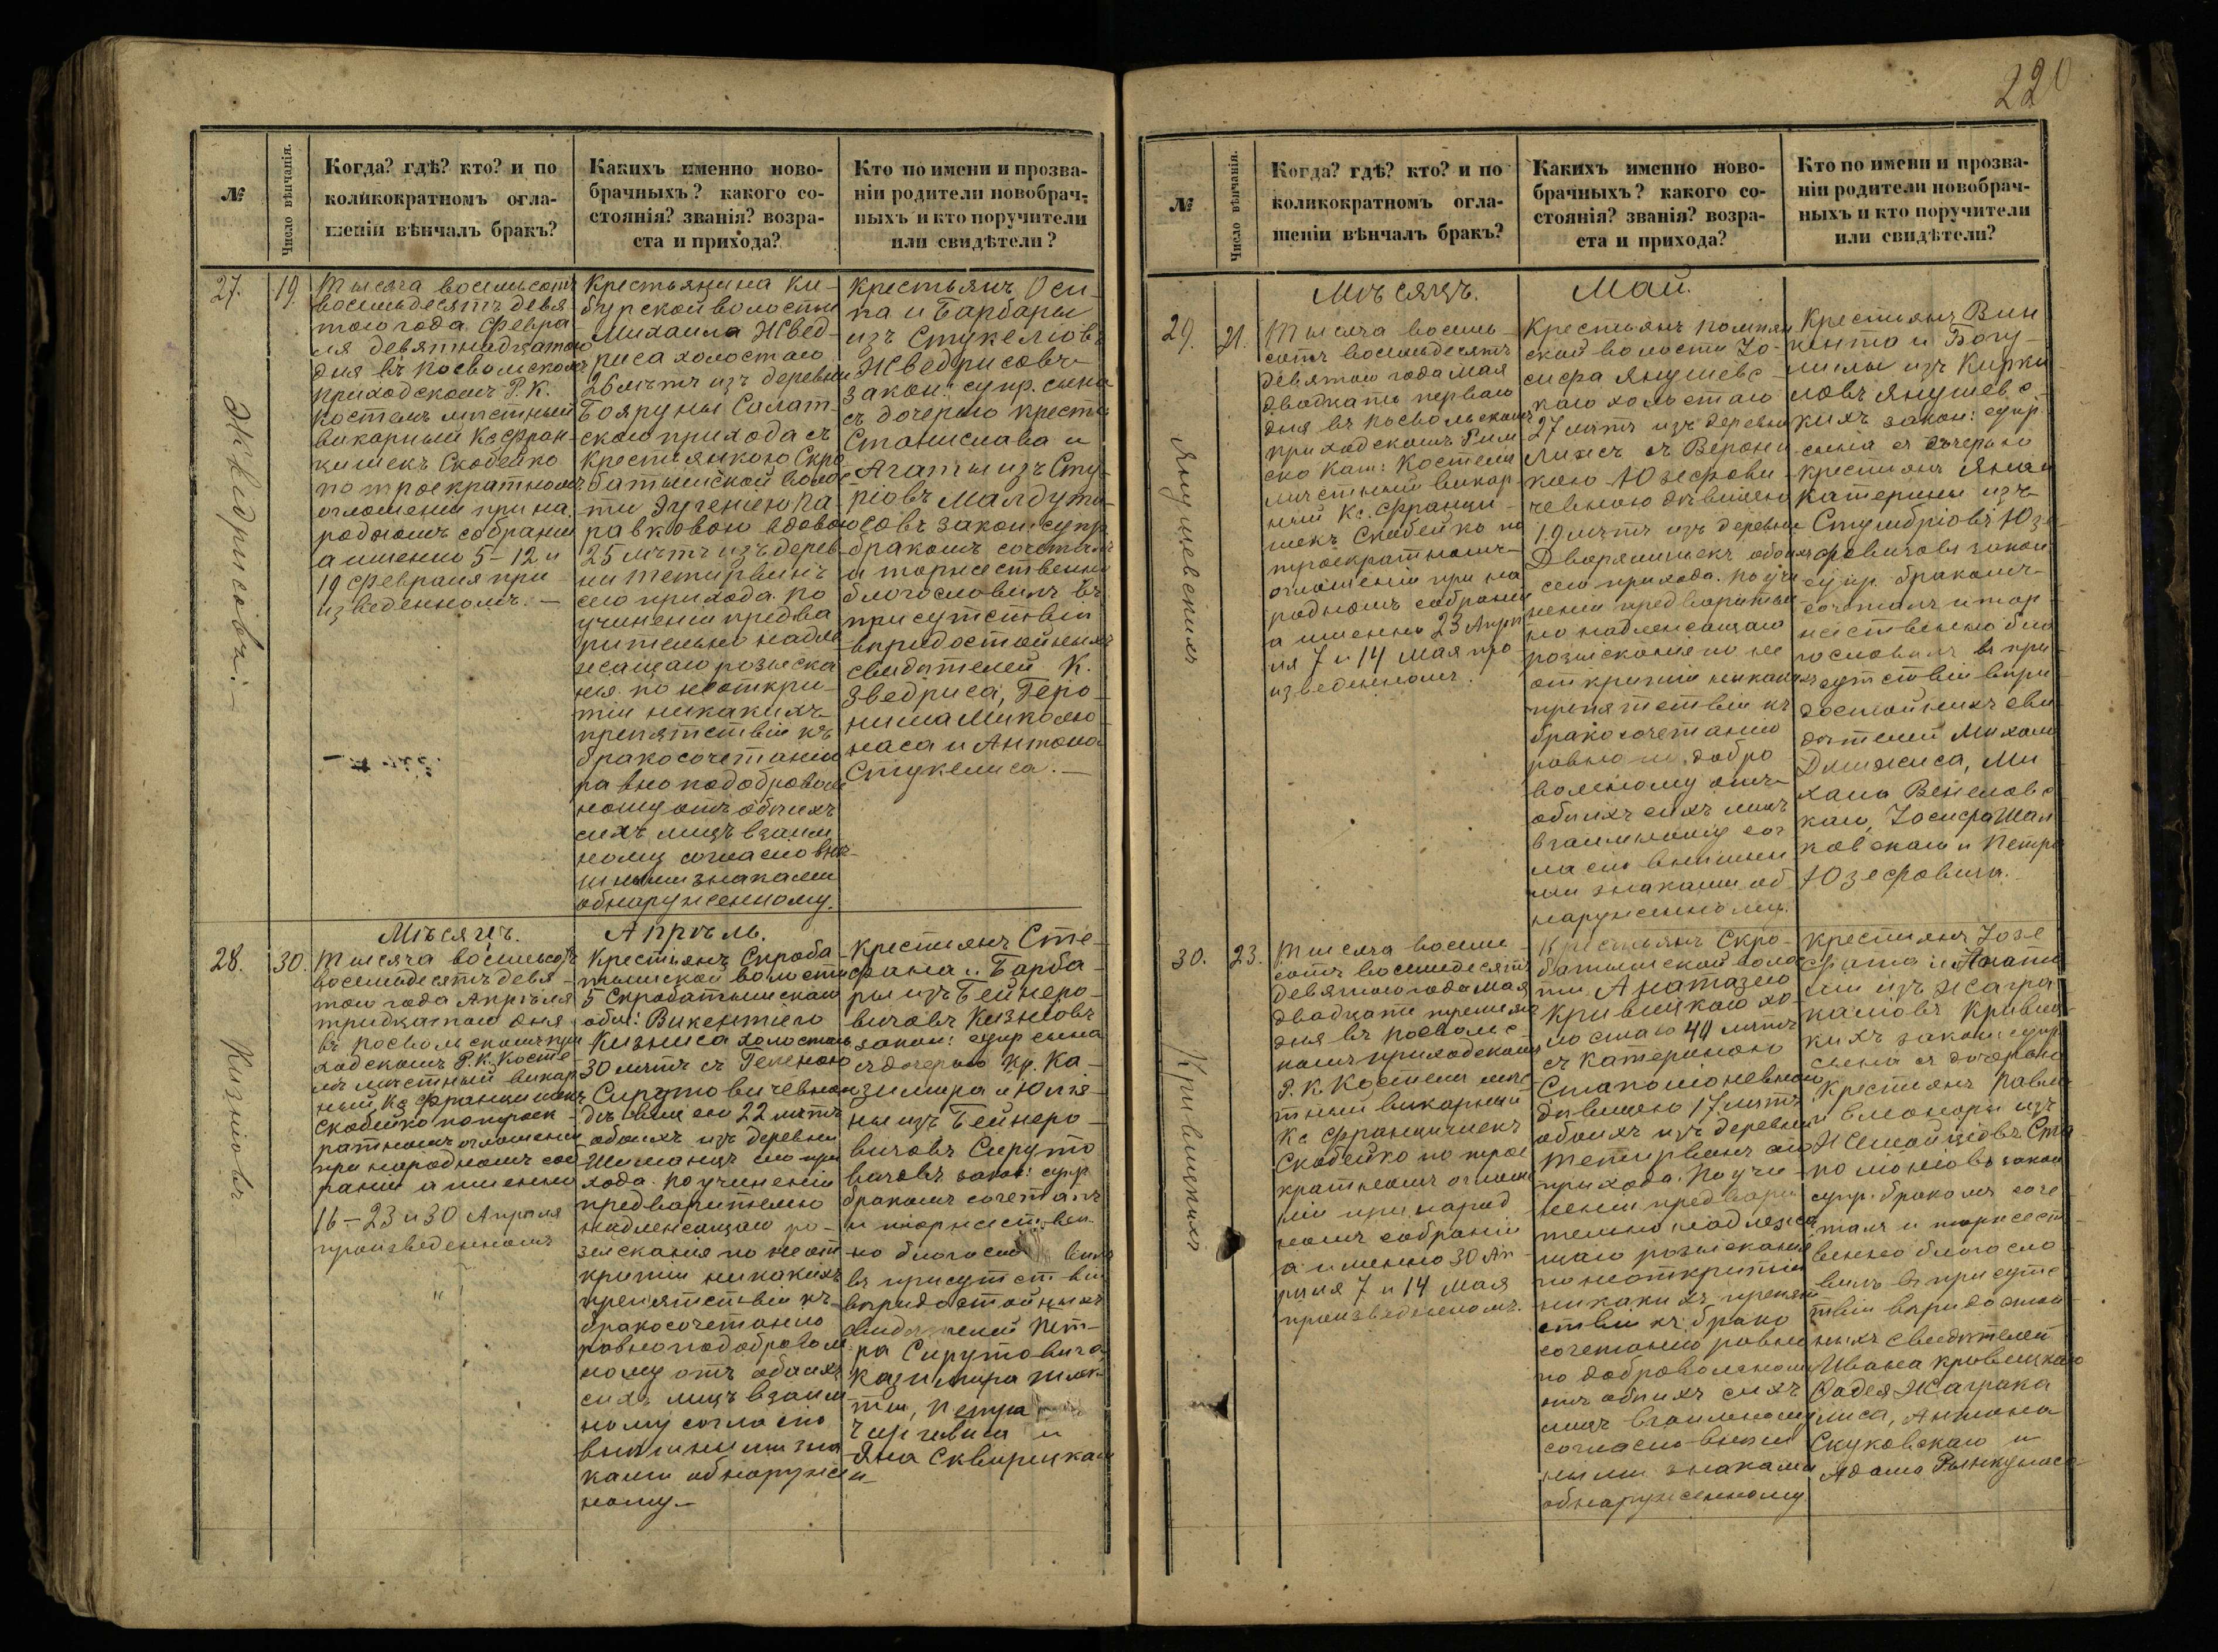 220
№
Число вѣнчанія.
Когда? гдѣ? кто? и по
коликократномъ огла-
шеніи вѣнчалъ бракъ?
Какихъ именно ново-
брачныхъ? какого со-
стоянія? званія? возра-
ста и прихода?
Кто по имени и прозва-
ніи родители новобрач-
ныхъ и кто поручители
или свидѣтели?
27.
19
Тысяча восемьсотъ
восемьдесятъ девя
таго года Февра-
ля девятнадцатаго
дня въ Посвольскомъ
приходскомъ Р. К.
Костелѣ мѣстный
викарный Кс Фран-
цишекъ Скобейко
по троекратномъ
оглашеніи при на
родномъ собраніи
а именно 5-12 и
19 Февраля при
изведенномъ. —
Крестьянина Ки-
бурской волости
Михаила Жвед-
риса холостаго
26 лѣтъ изъ деревни
Бояруны Салат-
скаго прихода съ
Крестьянкою Скро
батышской волос
ти Эугеніею Па-
равковою вдовою
25 лѣтъ изъ дерев-
ни Тетирвинъ
сего прихода. По
учиненіи предва
рительно надле
жащаго розыска
нія по неоткры-
тіи никакихъ
препятствій къ
бракосочетанію
равно по доброволь
ному отъ обоихъ
сихъ лицъ взаим
ному согласію внѣ-
шними знаками
обнаруженному.
Крестьянъ Оси-
па и Барбары
изъ Стукеліовъ
Жведрисовъ
закон: супр. сына
съ дочерью крест:
Станислава и
Агаты изъ Сту-
ріовъ Малдути-
совъ закон: супр
бракомъ сочеталъ
и торжественно
благословилъ въ
присутствіи
вѣридостойныхъ
свидѣтелей К.
Зведриса, Геро-
нима Миколю-
наса и Антона
Стукелиса. —
Жведрисовъ. —
Мѣсяцъ. Апрѣль.
28.
30.
Тысяча восемьсотъ
восемьдесятъ девя-
таго года Апрѣля
тридцатаго дня
въ Посвольскомъ при
ходскомъ Р. К. Косте-
лѣ мѣстный викар
ный Кс Францишекъ
Скобейко по троек-
ратномъ оглашеніи
при народномъ соб
раніи а именно
16-23 и 30 Апрѣля
произведенномъ
Крестьянъ Скроба
тышской волости
5 Скробатышскаго
общ: Викентіего
Кизниса холостаго
30 лѣтъ съ Геленою
Сирутовичевною
дѣвицею 22 лѣтъ
обоихъ изъ деревни
Шиманцъ сего при
хода. По учиненіи
предварително
надлежащаго ро-
зысканія по неот
крытіи никакихъ
препятствій къ
бракосочетанію
равно по доброволь
ному отъ обоихъ
сихъ лицъ взаим
ному согласію
внѣшними зна
ками обнаружен
ному. —
Крестьянъ Сте-
фана и Барба-
ры изъ Бейнеро-
вичовъ Кизніовъ
закон: супр сына
съ дочерью Кр. Ка-
зимира и Юлія-
ны изъ Бейнеро-
вичовъ Сируто
вичовъ закон: супр
бракомъ сочеталъ
и торжествен-
но благосло вилъ
въ присутствіи
вѣридостойныхъ
свидѣтелей Пет-
ра Сирутовича,
Казимира
Петра
и
Яна Сквирецкаго
Кизніовъ
№
Число вѣнчанія.
Когда? гдѣ? кто? и по
коликократномъ огла-
шеніи вѣнчалъ бракъ?
Какихъ именно ново-
брачныхъ? какого со-
стоянія? званія? возра-
ста и прихода?
Кто по имени и прозва-
ніи родители новобрач-
ныхъ и кто поручители
или свидѣтели?
Мѣсяцъ. Май.
29.
21.
Тысяча восемь-
сотъ восемьдесятъ
девятаго года Мая
двадцать перваго
дня въ Посвольскомъ
приходскомъ Рим
ско Кат: Костели
мѣстный викар-
ный Кс. Франци-
шекъ Скобейко по
троекратномъ
оглашеніи при на
родномъ собраніи
а именно 23 Апрѣ
ля 7 и 14 Мая про
изведенномъ.
Крестьянъ Помпян
ской волости Іо-
сифа Янушевс-
каго холостаго
27 лѣтъ изъ деревни
съ Верони
кою Юзефови-
чевною дѣвицею
19 лѣтъ изъ деревни
Дворялишекъ обоихъ
сего прихода. По учи
неніи предваритель
но надлежащаго
розысканія по не
открытіи никакихъ
препятствій къ
бракосочетанію
равно по добро
вольному отъ
обоихъ сихъ лицъ
взаимному сог
ласію внѣшни
ми знаками об
наруженному.
Крестьянъ Вин
кента и Богу-
милы изъ Кирки
ловъ Янушевс-
кихъ закон: супр.
сына съ дочерью
крестьянъ Яна и
Катерины изъ
Стумбріовъ Юзе-
фовичовъ закон
супр. бракомъ
сочеталъ и тор
жественно бла
гословилъ въ при
сутствіи вѣри
достойныхъ сви
дѣтелей Михаила
Ми
хаила
каго, Іосифа Шал
ковскаго и Петра
Юзефовича.
Янушевскихъ
30.
23.
Тысяча восемь-
сотъ восемдесятъ
девятаго года Мая
двадцать третьяго
дня въ Посвольс-
комъ приходскомъ
Р. К. Костели мѣс
тный викарный
Кс Францишекъ
Скобейко по трое
кратномъ оглаше
ніи при народ
номъ собраніи
а именно 30 Ап
рѣля 7 и 14 Мая
произведенномъ.
Крестьянъ Скро-
батышской волос
ти Анатазего
Кривицкаго хо-
лостаго 40 лѣтъ
съ Катериною
Стаполіоневною
дѣвицею 17 лѣтъ
обоихъ изъ деревни
Тетирвинъ сего
прихода. По учи
неніи предвари
тельно надлежа
щаго розысканія
по неоткрытіи
никакихъ препят
ствій къ брако
сочетанію равно
по добровольному
отъ обоихъ сихъ
лицъ взаимному
согласію внѣш
ними знаками
обнаруженному.
Крестьянъ Іозе
фата и Агаты
изъ Жагра
каліовъ Кривиц
кихъ закон супр
сына съ дочерью
Крестьянъ Павла
и Елеоноры изъ
Ста
поліоніовъ закон
супр. бракомъ соче
талъ и торжест
венно благосло
вилъ въ присутс
твіи вѣридостой
ныхъ свидѣтелей
Ивана Кривицкаго
Фадея Жаграка
лиса, Антона
Скуковскаго и
Адама Рынкунаса
Кривицкихъ